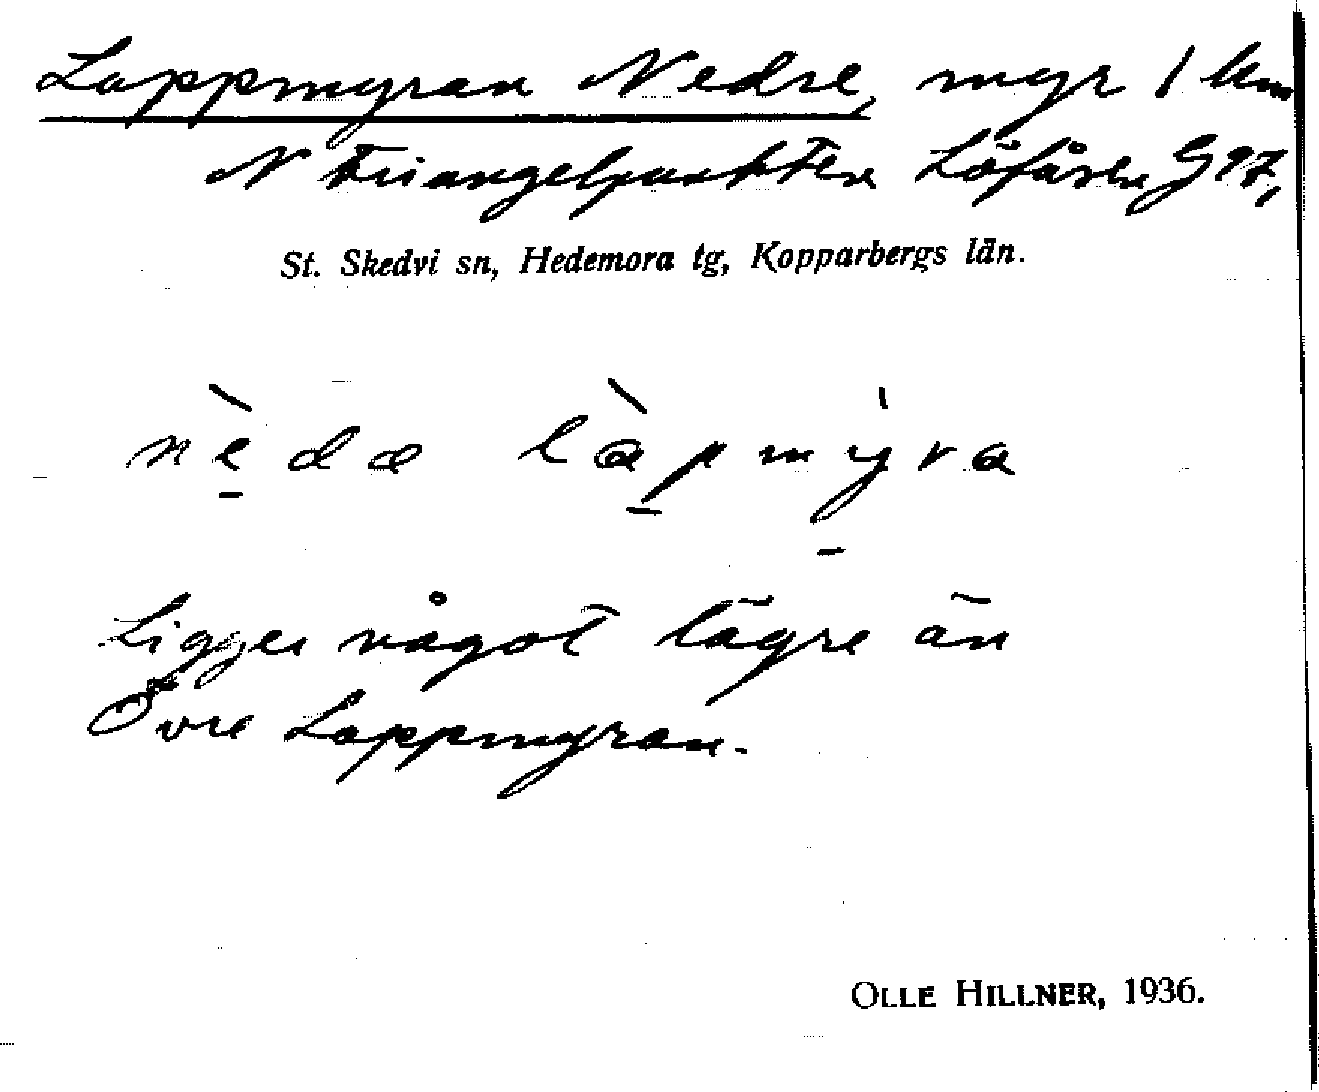 Lappmyran Nedre, myr 1 km
N triangelpunkten Löfåsen G 97,
St. Skedvi sn, Hedemora tg, Kopparbergs län.
nèdæ làpmỳra
Ligger något lägre än
Övre Lappmyran.
OLLE HILLNER, 1936.